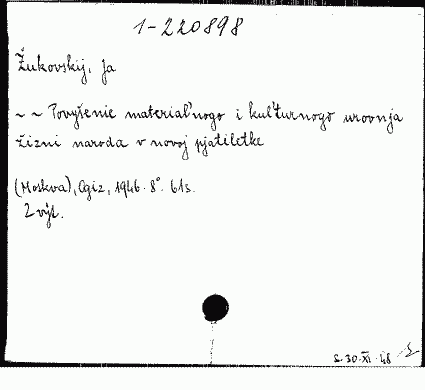 1-220898
Žukovskij, Ja
~ ~ Povyšenie material'nogo i kul'turnogo urovnja
žizni naroda v novoj pjatiletke
(Moskva), Ogiz, 1946. 8°. 61s.
2 výt.
30. XI. 48